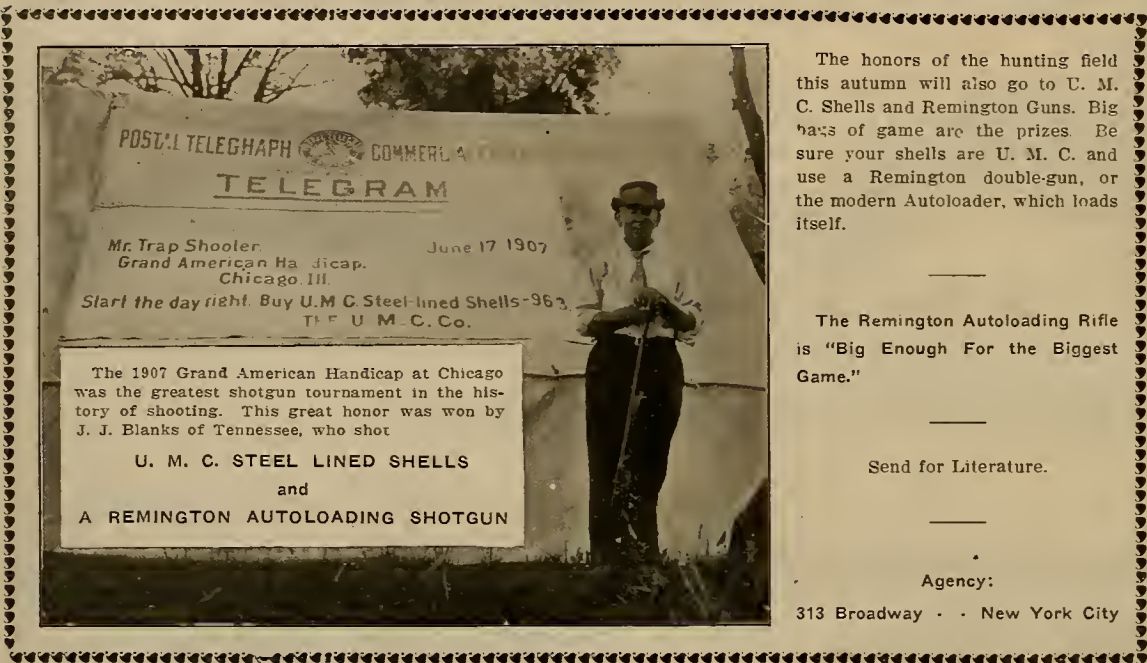 POSTAL TELEGRAPH COMMERCIAL
TELEGRAM
Mr. Trap Shooter.
June 17 1907
Grand American Handicap.
Chicago. Ill.
Start the day right. Buy U.M C. Steel-lined Shells-963
THE U. M. C. Co.
The 1907 Grand American Handicap at Chicago
was the greatest shotgun tournament in the his-
tory of shooting. This great honor was won by
J. J. Blanks of Tennessee, who shot
U. M. C. STEEL LINED SHELLS
and
A REMINGTON AUTOLOADING SHOTGUN
The honors of the hunting field
this autumn will also go to U. M.
C. Shells and Remington Guns. Big
bags of game are the prizes. Be
sure your shells are U. M. C. and
use a Remington double-gun, or
the modern Autoloader, which loads
itself.
The Remington Autoloading Rifle
is "Big Enough For the Biggest
Game."
Send for Literature.
Agency:
313 Broadway - - New York City